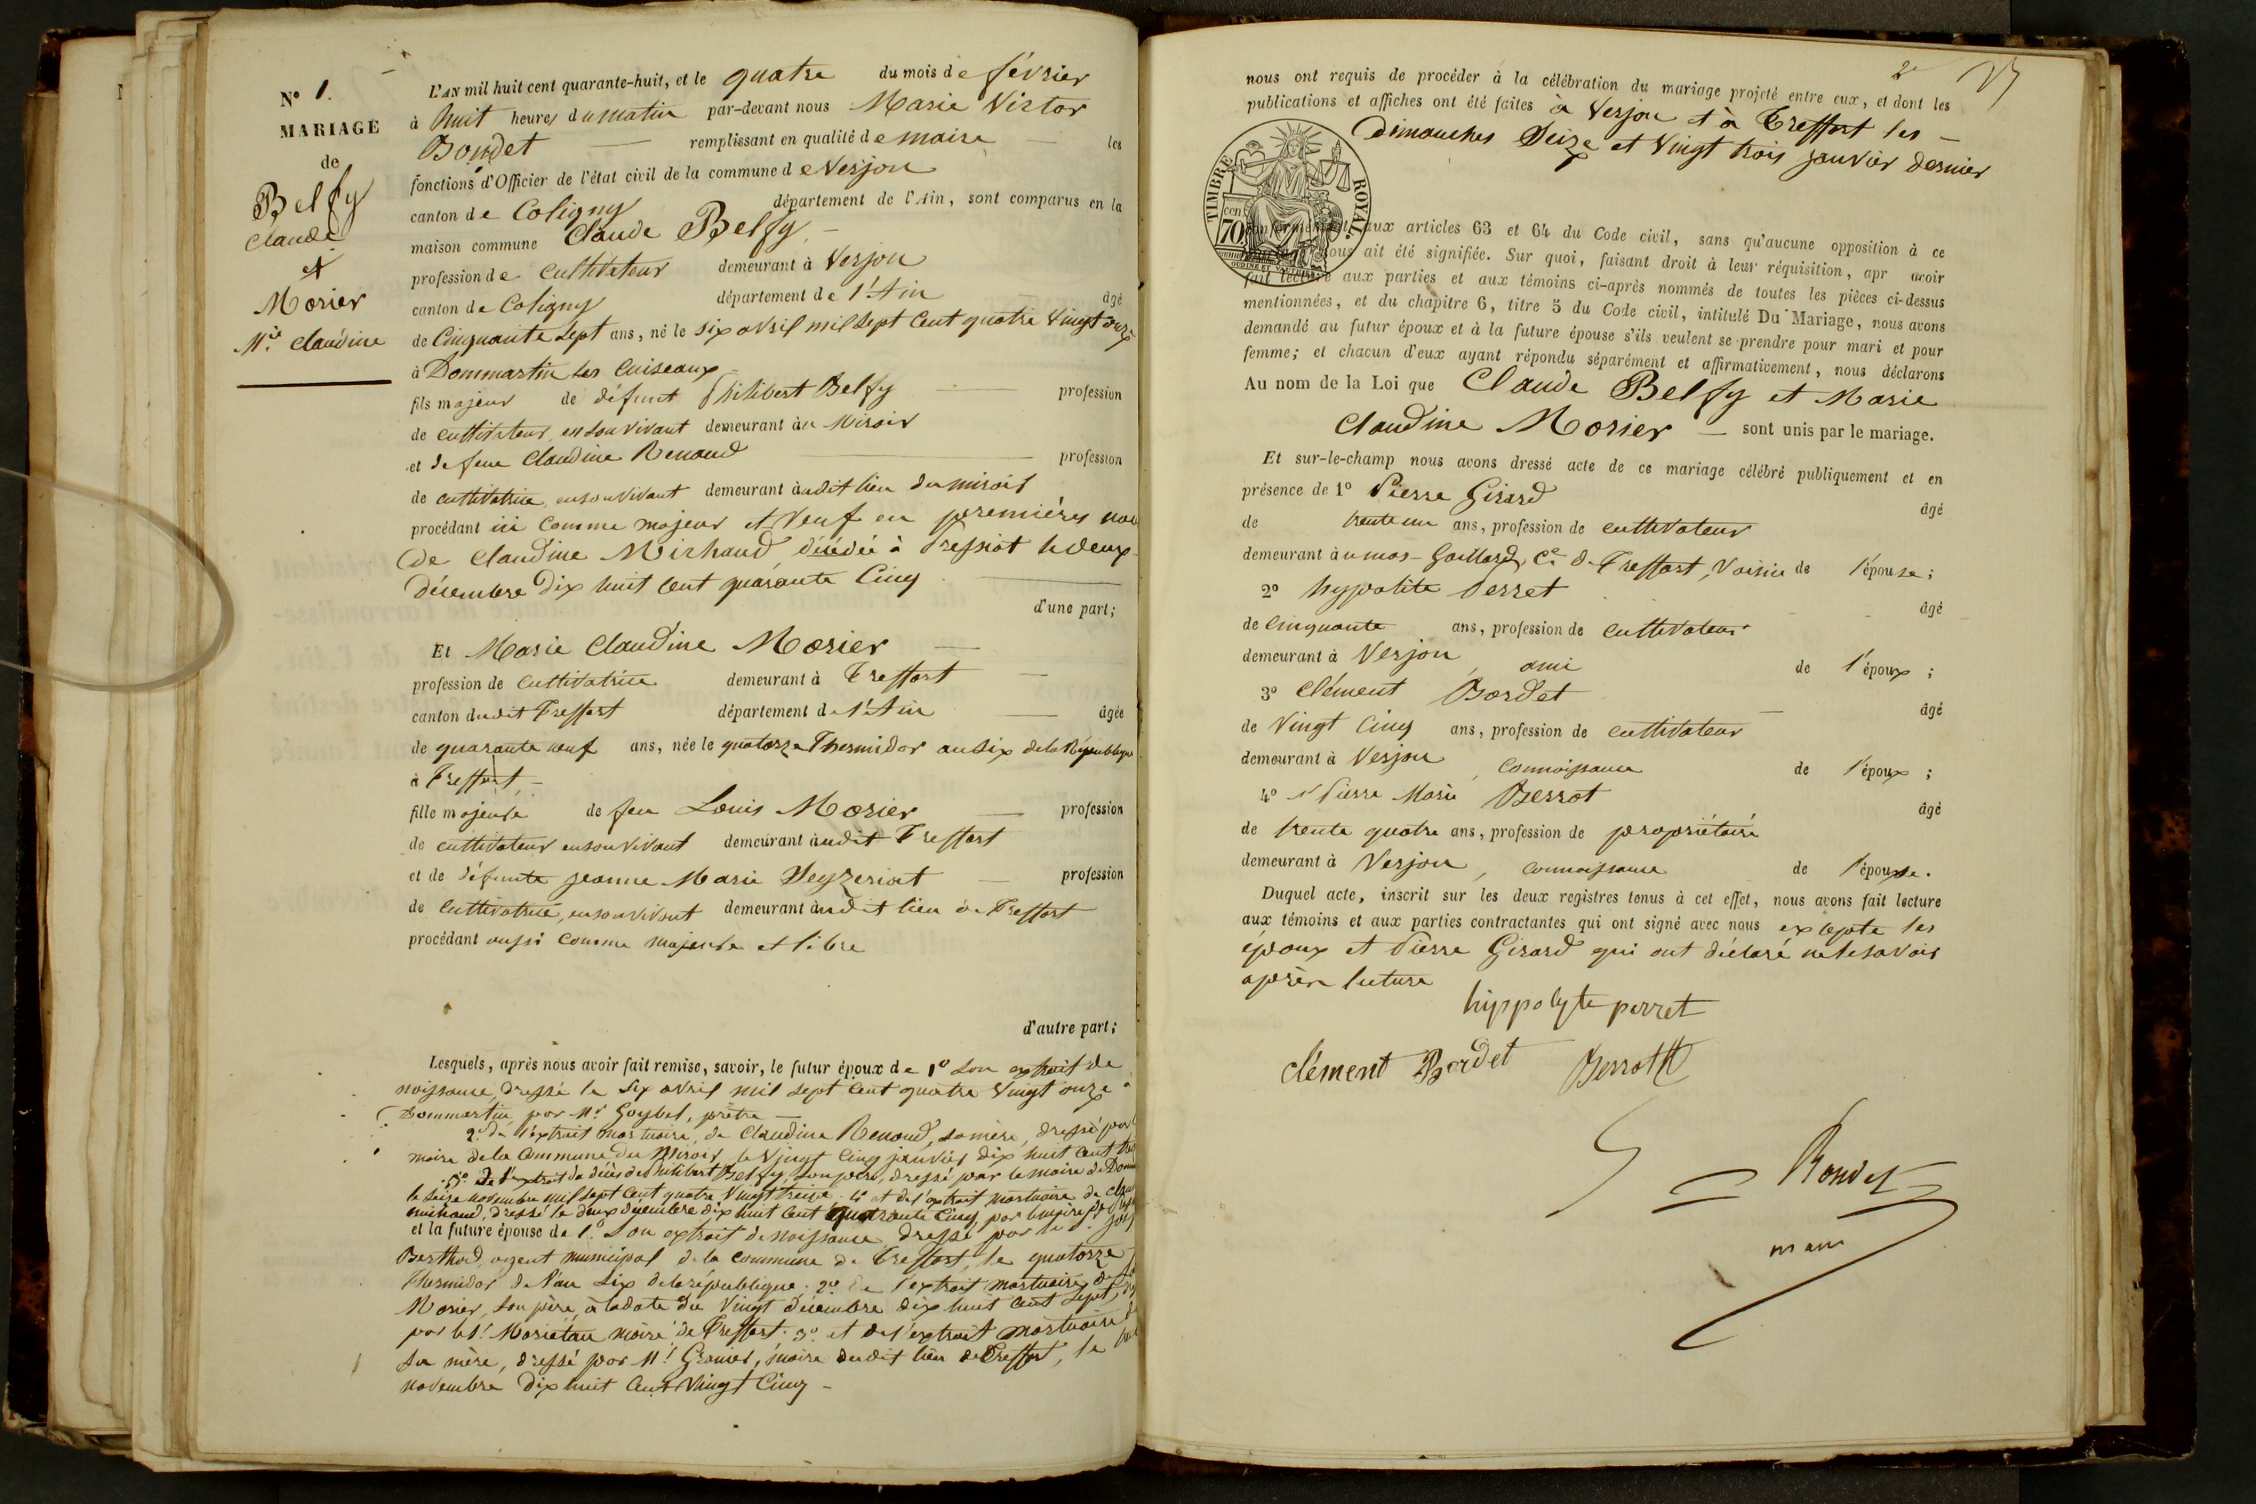 N° 1.
MARIAGE
de
Belfy
Claude
et
Morier
M.ie Claudine
L'AN mil huit cent quarante-huit, et le quatre du mois de février
à huit heures du matin par-devant nous Marie Victor
Bondet remplissant en qualité de maire les
fonctions d'Officier de l'état civil de la commune de Verjon
canton de Coligny département de l'Ain, sont comparus en la
maison commune Claude Belfy
profession de cultivateur demeurant à Verjon
canton de Coligny département de l'Ain âgé
de Cinquante sept ans, né le six avril mil sept cent quatre vingt onze
à Dommartin les Cuiseaux
fils majeur de défunt Philibert Belfy profession
de cultivateur en son vivant demeurant au Miroir
et de feue Claudine Renaud profession
de cultivatrice en son vivant demeurant audit lieu du miroir
procédant ici comme majeur et Veuf en premières
de Claudine Michaud décédée à Pressiat le deux
décembre dix huit cent quarante Cinq
d'une part;
Et Marie Claudine Morier
profession de cultivatrice demeurant à Treffort
canton dudit Treffort département de l'Ain âgée
de quarante neuf ans, née le quatorze Thermidor an six de la République
à Treffort
fille majeure de feu Louis Morier profession
de cultivateur en son vivant demeurant audit Treffort
et de défunte jeanne Marie Veyzeriat profession
de cultivatrice, en son vivant demeurant audit lieu de Treffort
procédant aussi comme majeure et libre
d'autre part;
Lesquels, après nous avoir fait remise, savoir, le futur époux de 1° son extrait de
naissance, dressé le six avril mil sept cent quatre vingt onze à
Dommartin par Mr Goybet, prêtre
2° de l'extrait mortuaire de Claudine Renaud, sa mère, dressé par
maire de la Commune du Miroir le Vingt Cinq janvier dix huit cent
3° de l'extrait de décès de Philibert Belfy, son père, dressé par le maire de
le seize novembre mil sept cent quatre Vingt treize. 4° et de l'extrait mortuaire de
michaud, dressé le deux décembre dix huit cent quarante Cinq par le maire de
et la future épouse de 1° Son extrait de naissance dressé par le
Berthod, agent municipal de la commune de Treffort, le quatorze
Thermidor de l'an six de la république; 2° de l'extrait mortuaire de
Morier, son père, à la date du Vingt décembre dix huit cent sept,
par le Sr Moriétan maire de Treffort. 3° et de l'extrait mortuaire
sa mère, dressé par Mr Granier, maire dudit lieu de Treffort, le
novembre dix huit cent Vingt Cinq
2e
nous ont requis de procéder à la célébration du mariage projeté entre eux, et dont les
publications et affiches ont été faites à Verjon et à Treffort les
dimanches Seize et Vingt trois janvier dernier
TIMBRE ROYAL
cen
70
aux articles 63 et 64 du Code civil, sans qu'aucune opposition à ce
nous ait été signifiée. Sur quoi, faisant droit à leur réquisition, apr avoir
fait lecture aux parties et aux témoins ci-après nommés de toutes les pièces ci-dessus
mentionnées, et du chapitre 6, titre 5 du Code civil, intitulé Du Mariage, nous avons
demandé au futur époux et à la future épouse s'ils veulent se prendre pour mari et pour
femme; et chacun d'eux ayant répondu séparément et affirmativement, nous déclarons
Au nom de la Loi que Claude Belfy et Marie
Claudine Morier sont unis par le mariage.
Et sur-le-champ nous avons dressé acte de ce mariage célébré publiquement et en
présence de 1° Pierre Girard âgé
de trente un ans, profession de cultivateur
demeurant au mas-Gaillard, Ce de Treffort, Voisin de l'épouse;
2° hypolite Perret âgé
de cinquante ans, profession de cultivateur
demeurant à Verjon, ami de l'époux;
3° Clément Bordet âgé
de Vingt Cinq ans, profession de cultivateur
demeurant à Verjon, connaissance de l'époux;
4° et Pierre Marie Berrot âgé
de trente quatre ans, profession de propriétaire
demeurant à Verjon, connaissance de l'épouse.
Duquel acte, inscrit sur les deux registres tenus à cet effet, nous avons fait lecture
aux témoins et aux parties contractantes qui ont signé avec nous excepté les
époux et Pierre Girard qui ont déclaré ne le savoir
après lecture
hippolyte perret
Clément Bordet Berrot
Bondet
maire